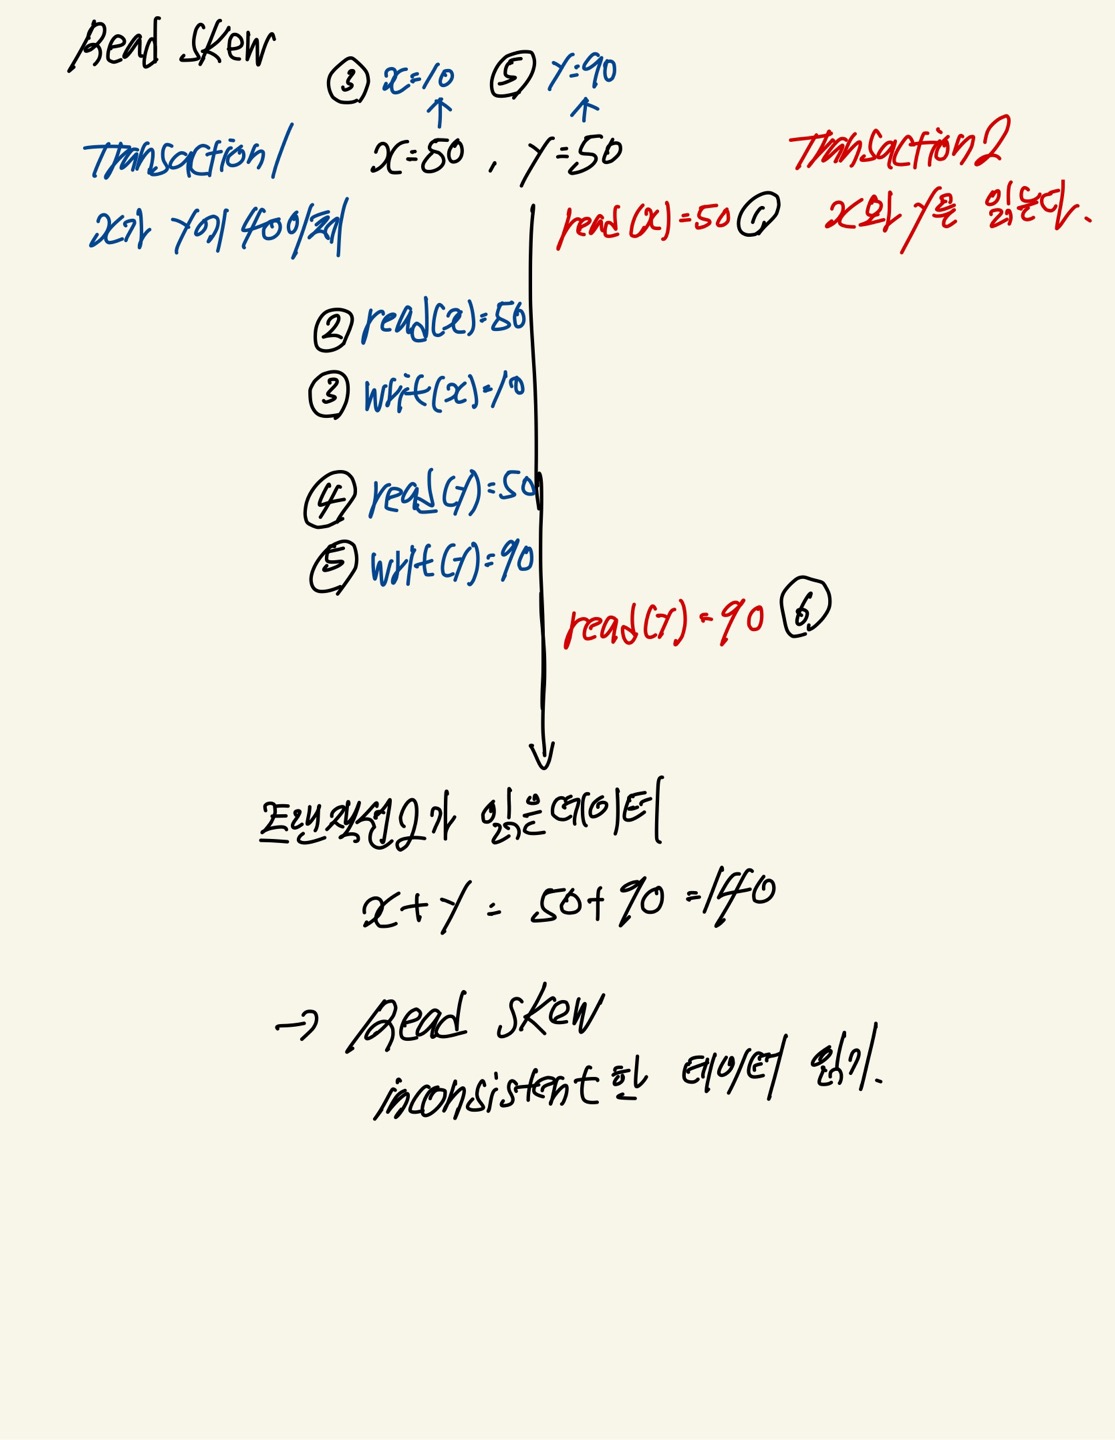 Read Skew
③ x=10 ⑤ y=90
↑ ↑
Transaction1 x=50, y=50 Transaction2
x가 y에 40이체 read(x)=50 ① x와 y를 읽는다.
② read(x)=50
③ writ(x)=10
④ read(y)=50
⑤ writ(y)=90
read(y)=90 ⑥
트랜잭션2가 읽은데이터
x+y = 50+90=140
→ Read Skew
inconsistent한 데이터 읽기.